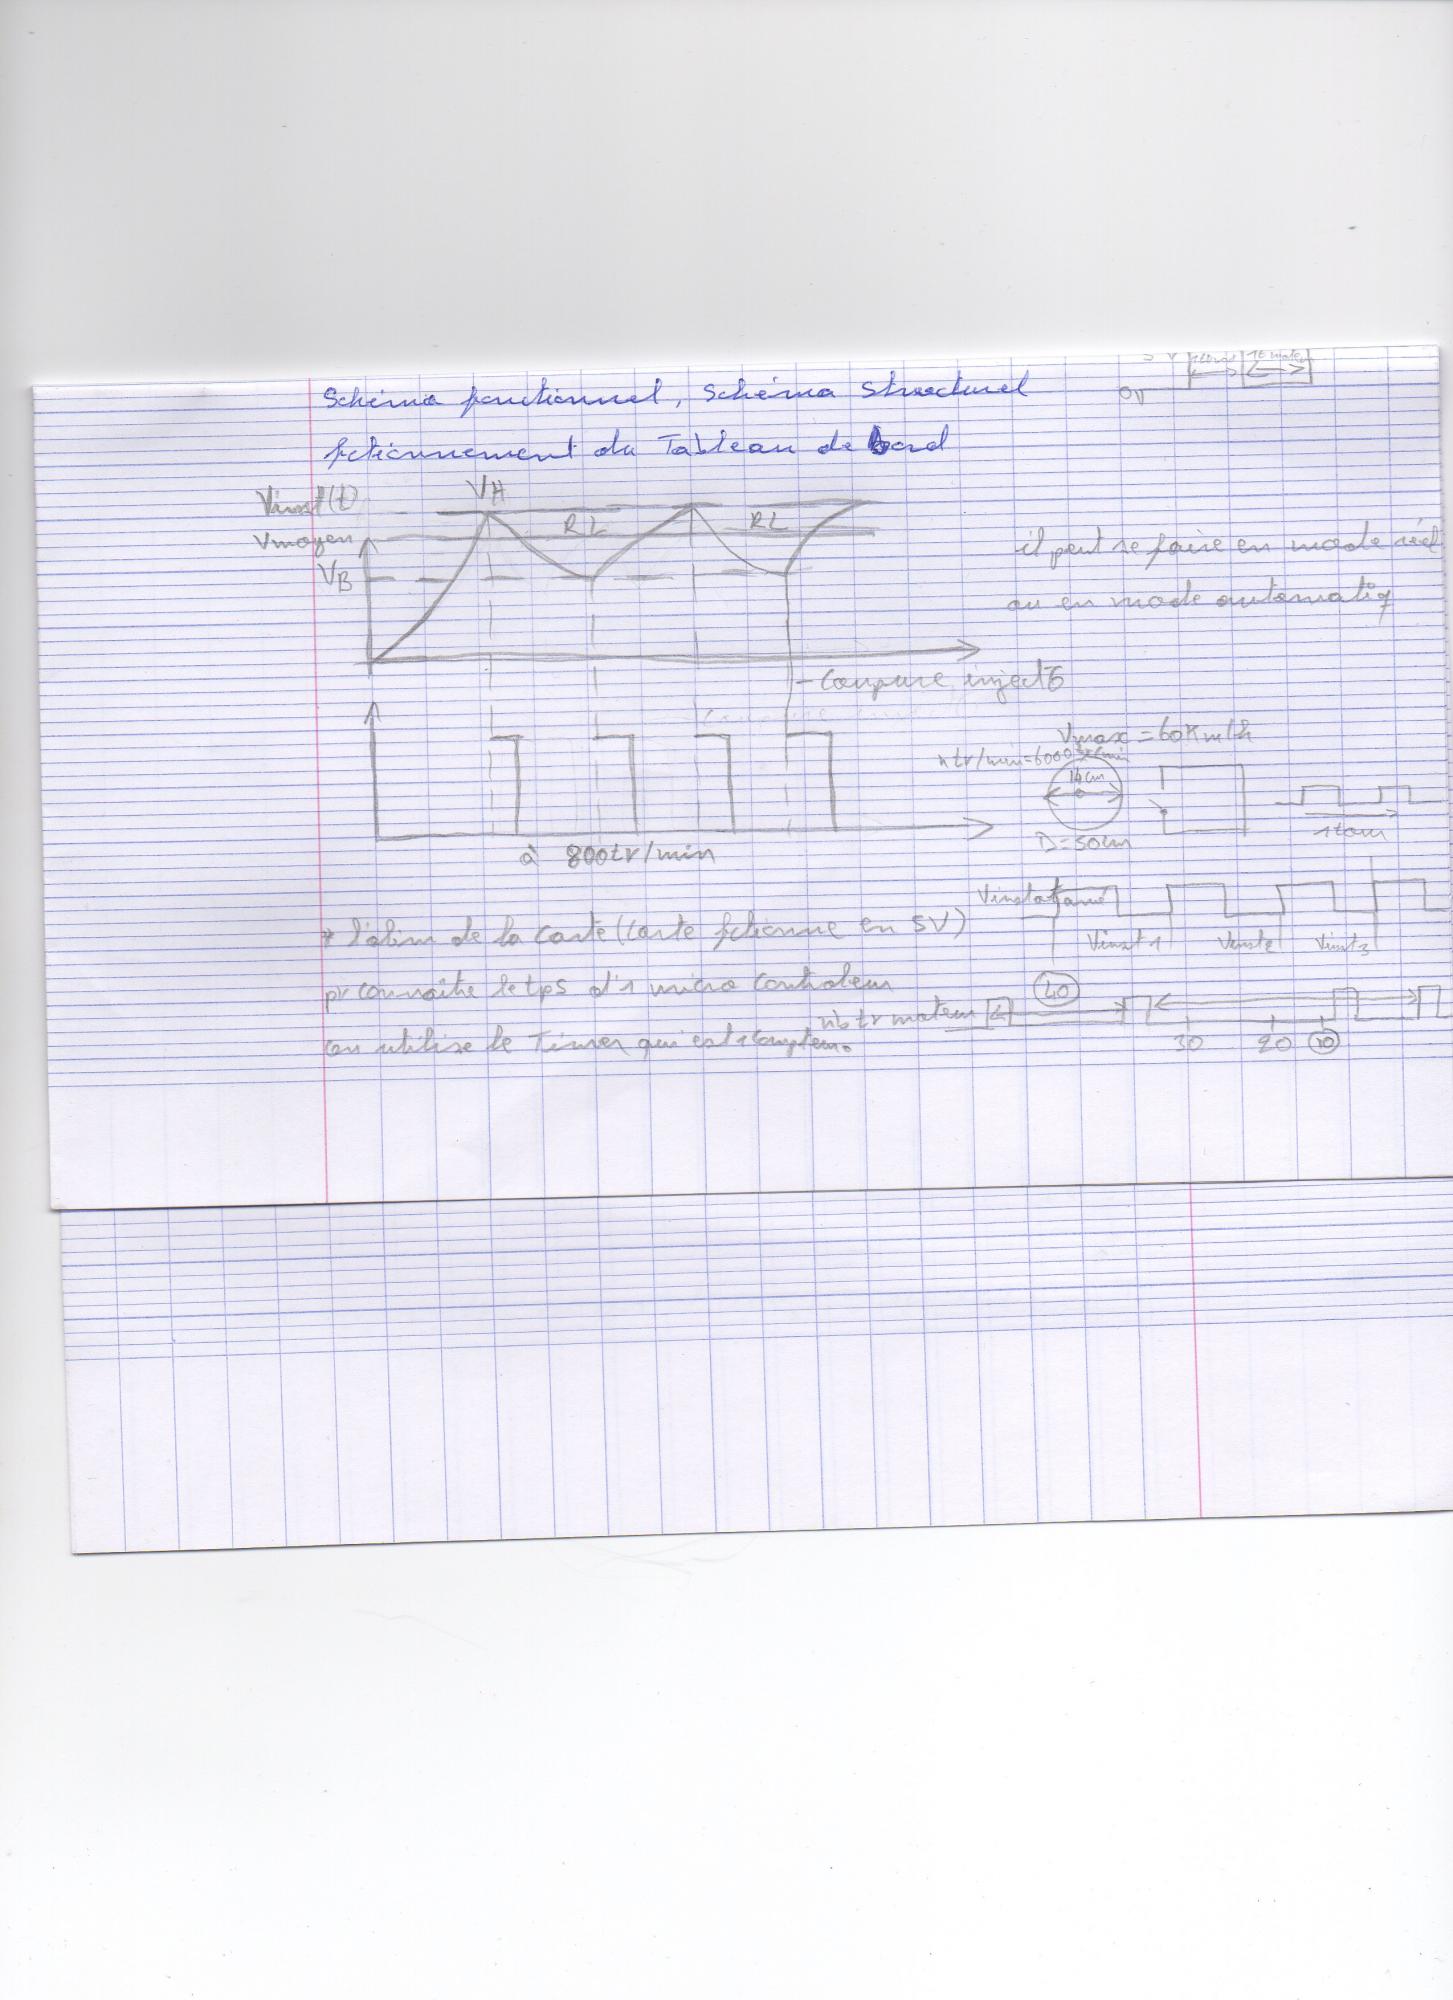 5V 1 tour 1t moteur
0V
Schéma fonctionnel, Schéma Structurel
fctionnement du Tableau de bord
Vinst(t)
VH
Vmoyen
RL RL
VB
il peut se faire en mode réel
ou en mode automatiq
- Coupure inject°
Vmax = 60Km/h
n tr/min = 6000 tr/min
D = 50cm
1 tour
à 800tr/min
Vinstantané
Vinst1 Vinst2 Vinst3
* l'alim de la carte (Carte fctionne en 5V)
pr connaître le tps d'1 micro Controleur
on utilise le Timer qui est 1 compteur.
nb tr moteur
40
30 20 10